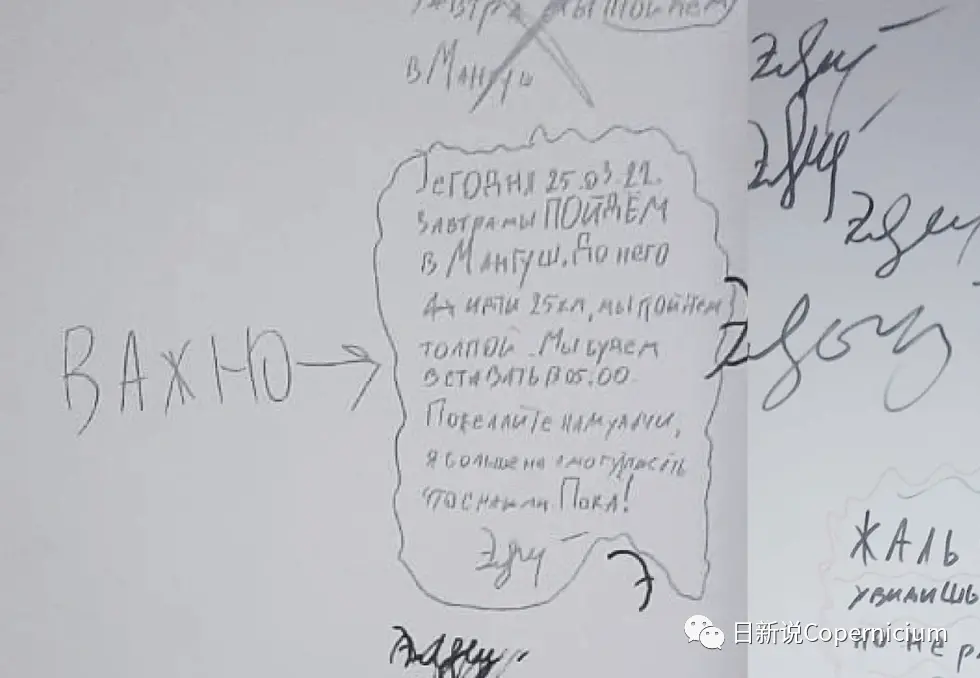 мы пойдём
в Мангуш
ВАЖНО →
Сегодня 25.03.22.
Завтра мы ПОЙДЁМ
в Мангуш. До него
идти 25км, мы пойдем
толпой. Мы будем
вставать в 05:00.
Пожелайте нам удачи,
я больше не смогу писать
что с нами. Пока!
ЖАЛЬ
увидишь
но не р
日新说Copernicium